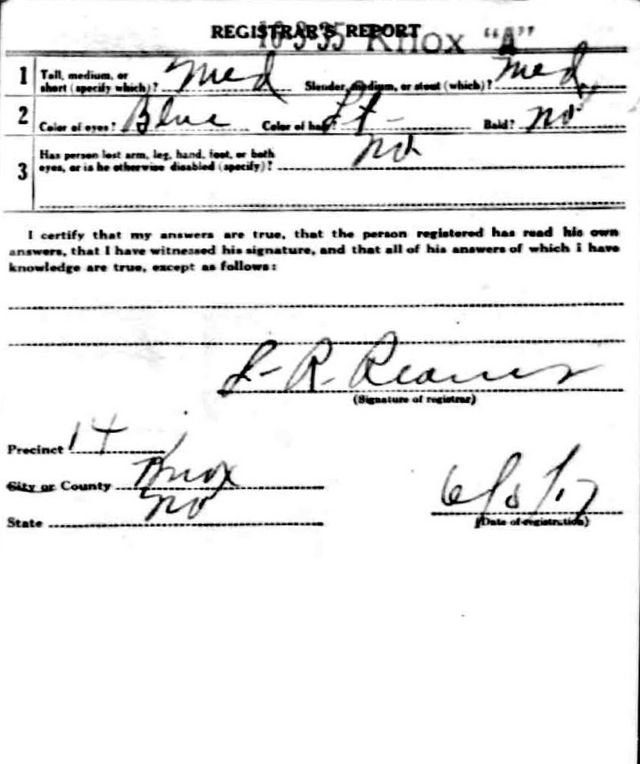 REGISTRAR'S REPORT
10-3-35 Knox "A"
1 Tall, medium, or short (specify which)? Med Slender, medium, or stout (which)? Med
2 Color of eyes? Blue Color of hair? Lt- Bald? no
3 Has person lost arm, leg, hand, foot, or both eyes, or is he otherwise disabled (specify)? no
I certify that my answers are true, that the person registered has read his own
answers, that I have witnessed his signature, and that all of his answers of which i have
knowledge are true, except as follows:
(Signature of registrar)
Precinct 14
City or County Knox
State
6/5/17
(Date of registration)